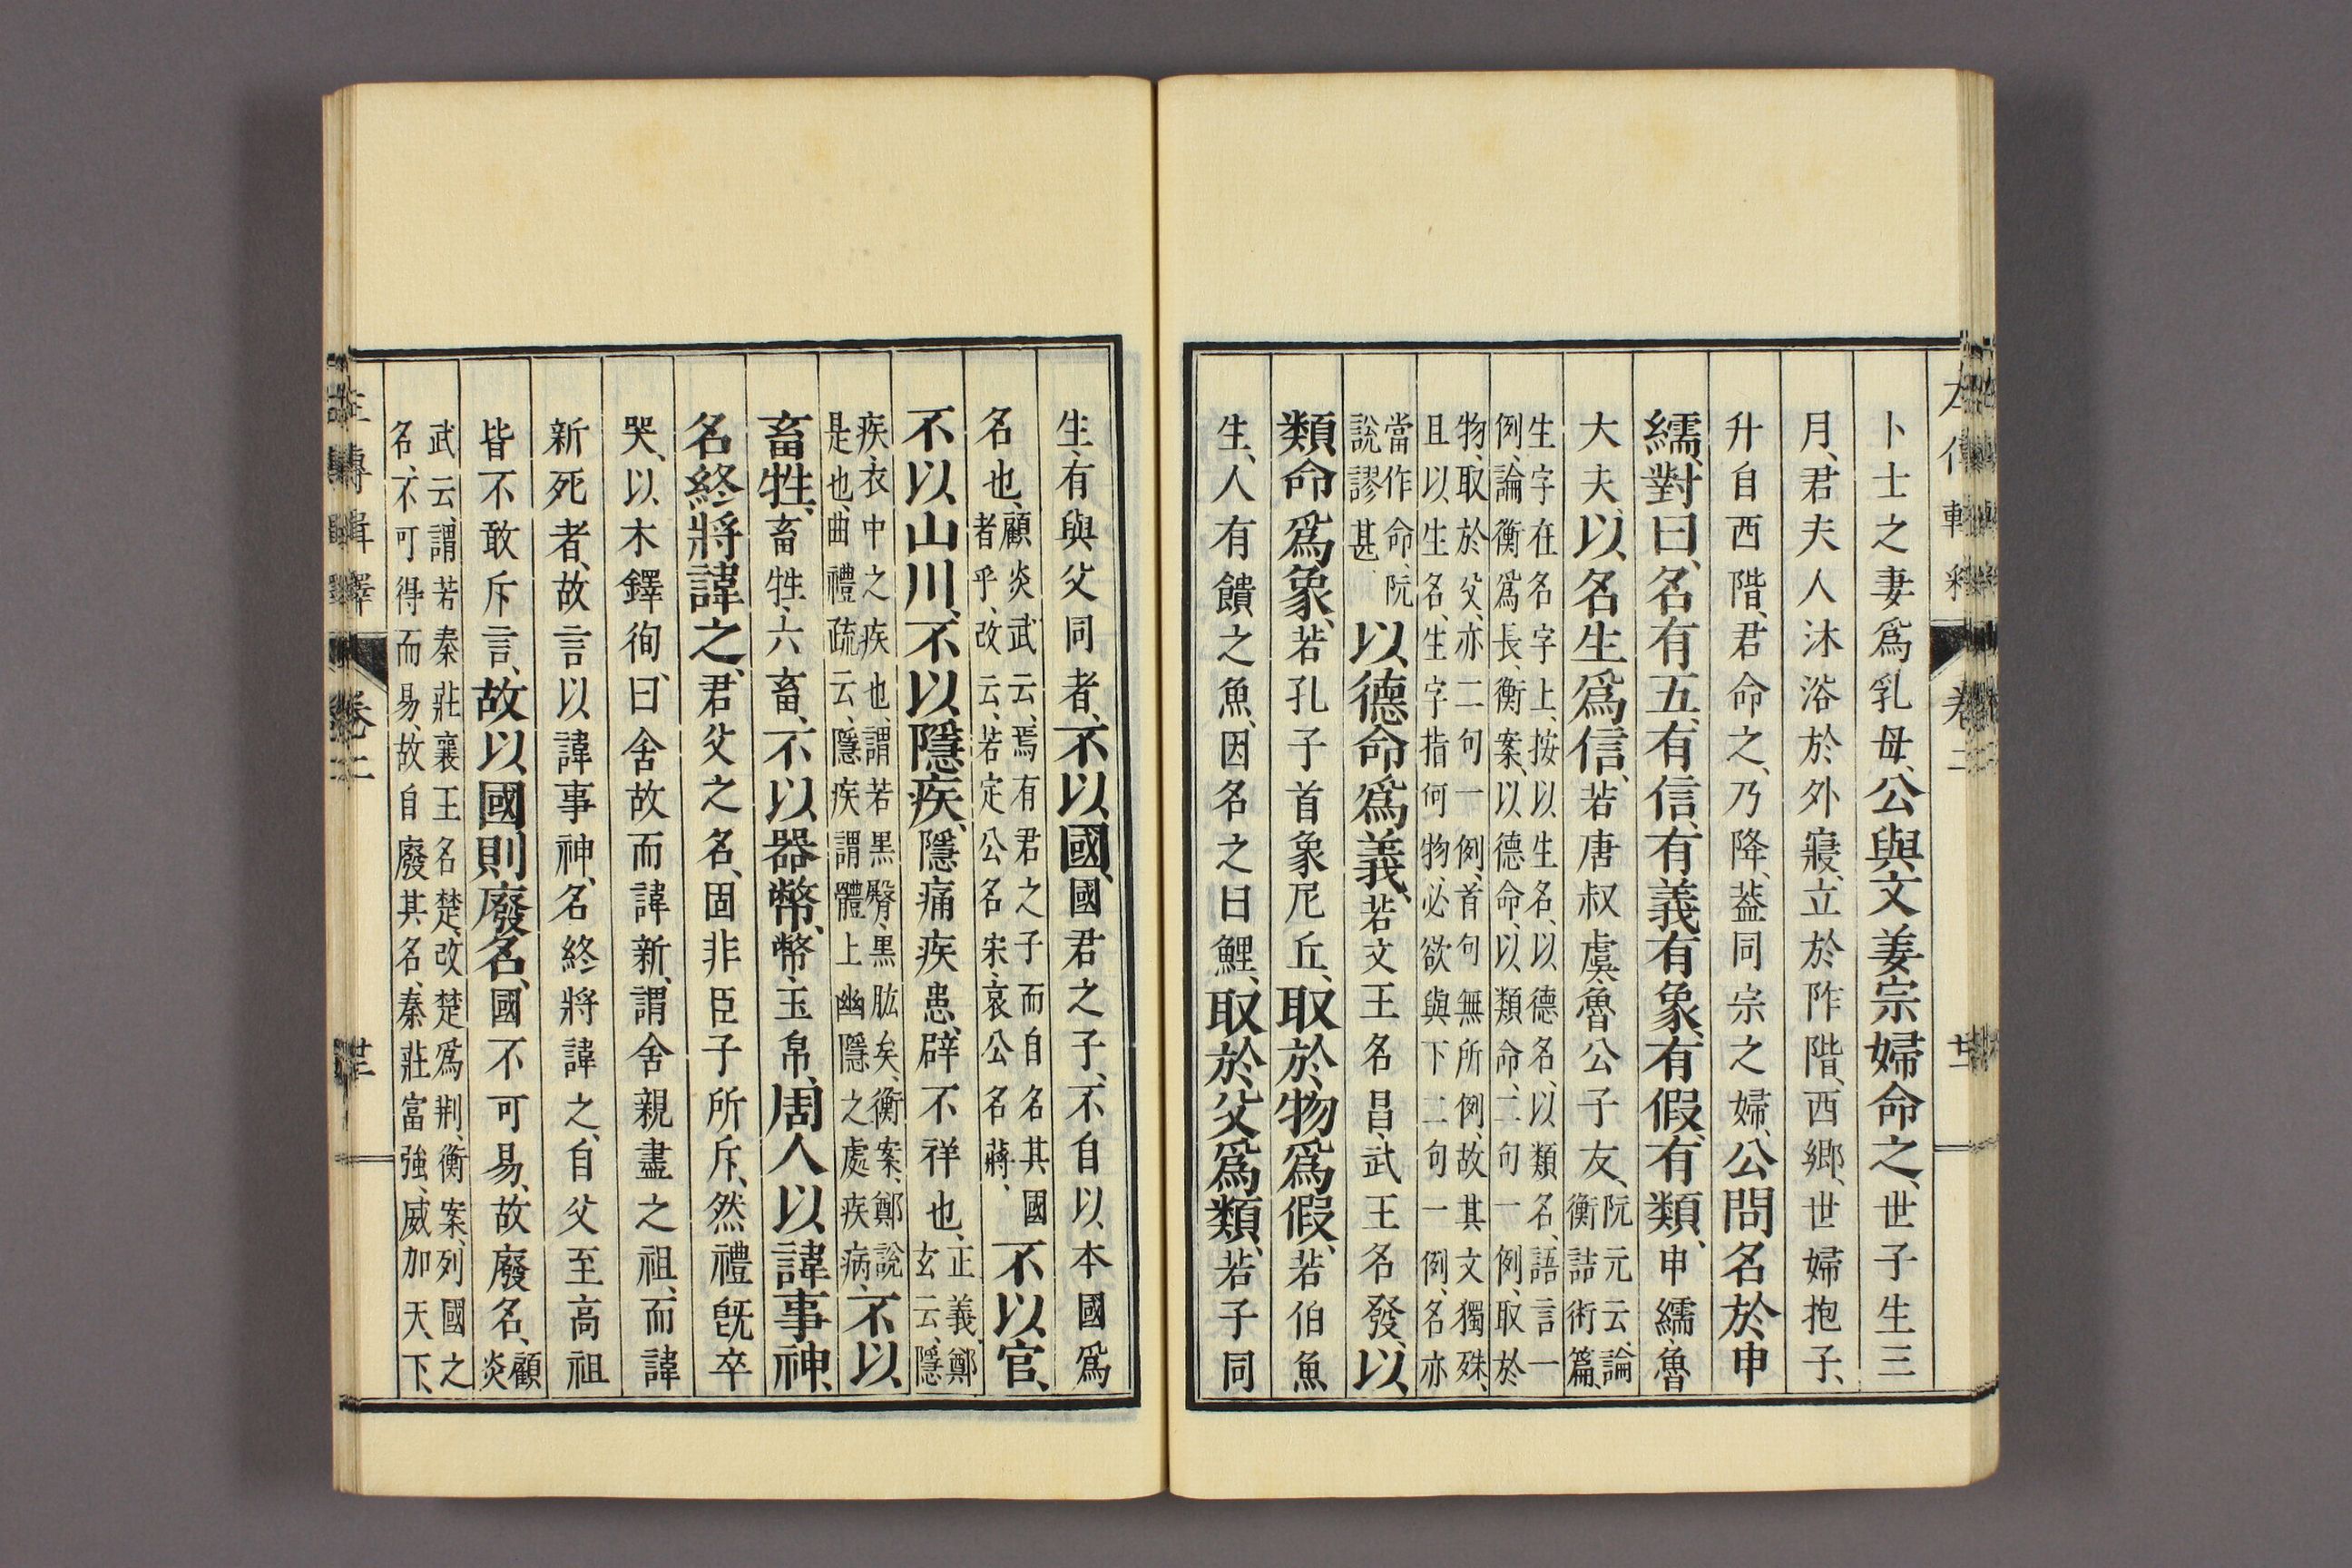 卜士之妻爲乳母、公與文姜宗婦命之、世子生三
月、君夫人沐浴於外寢、立於阼階、西鄉、世婦抱子、
升自西階、君命之、乃降、蓋同宗之婦、公問名於申
繻、對曰、名有五、有信、有義、有象、有假、有類、申繻、魯
大夫、以名生爲信、若唐叔虞、魯公子友、阮元云、論
衡詰術篇、
生字在名字上、按以生名、以德名、以類名、語言一
例、論衡爲長、衡案、以德命、以類命、二句一例、取於
物、取於父、亦二句一例、首句無所例、故其文獨殊、
且以生名、生字指何物、必欲與下二句一例、名亦
當作命、阮
說謬甚
以德命爲義、若文王名昌、武王名發、以
類命爲象、若孔子首象尼丘、取於物爲假、若伯魚
生、人有饋之魚、因名之曰鯉、取於父爲類、若子同
生、有與父同者、不以國、國君之子、不自以本國爲
名也、顧炎武云、焉有君之子而自名其國
者乎、改云、若定公名宋、哀公名蔣、
不以官、
不以山川、不以隱疾、隱痛疾患、辟不祥也、正義、鄭
玄云、隱
疾、衣中之疾也、謂若黑臀、黑肱矣、衡案、鄭說
是也、曲禮疏云、隱疾謂體上幽隱之處疾病、
不以
畜牲、畜牲、六畜、不以器幣、幣、玉帛、周人以諱事神、
名終將諱之、君父之名、固非臣子所斥、然禮旣卒
哭、以木鐸徇、曰舍故而諱新、謂舍親盡之祖、而諱
新死者、故言以諱事神、名終將諱之、自父至高祖
皆不敢斥言、故以國則廢名、國不可易、故廢名、顧
炎
武云、謂若秦莊襄王名楚、改楚爲荆、衡案、列國之
名、不可得而易、故自廢其名、秦莊富強、威加天下、